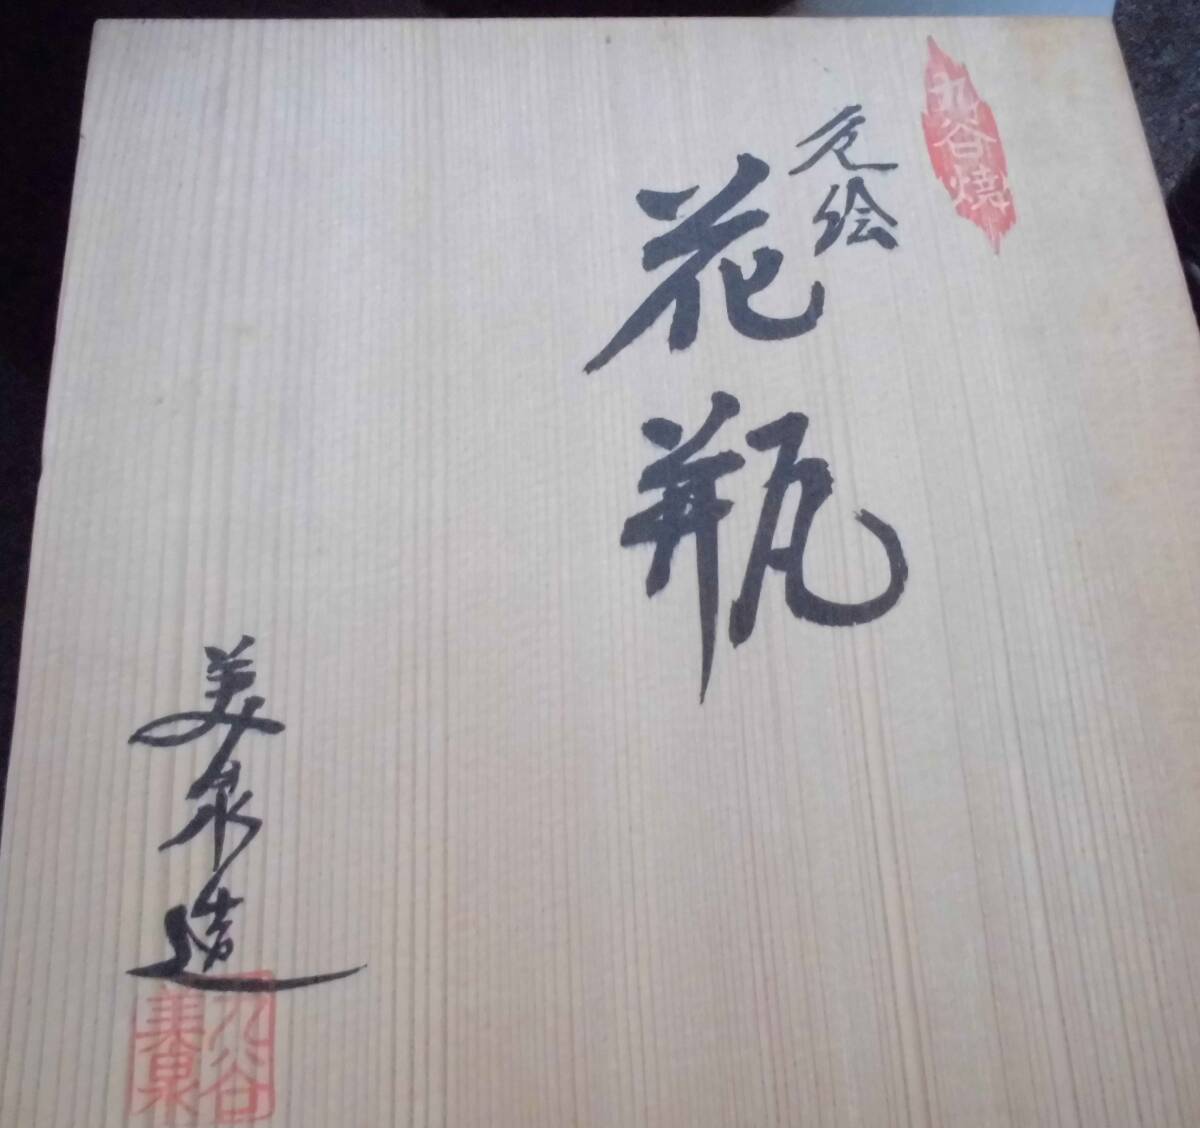 九谷焼
色絵
花瓶
美泉造
九谷
美泉